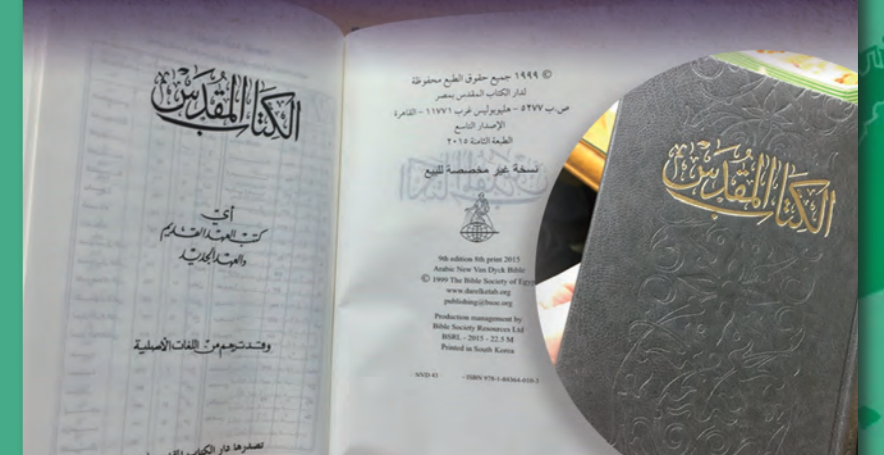 الكتاب المقدس
أي
كتب العهد القديم
والعهد الجديد
وقد ترجم من اللغات الأصلية
تصدرها دار الكتاب
© ١٩٩٩ جميع حقوق الطبع محفوظة
لدار الكتاب المقدس بمصر
ص.ب ٥٢٧٧ - هليوبوليس غرب ١١٧٧١ - القاهرة
الإصدار التاسع
الطبعة الثامنة ٢٠١٥
نسخة غير مخصصة للبيع
9th edition 8th print 2015
Arabic New Van Dyck Bible
© 1999 The Bible Society of
www.darelketab.org
publishing@bsoe.org
Production management by
Bible Society Resources Ltd
BSRL - 2015 - 22.5 M
Printed in South Korea
الكتاب المقدس